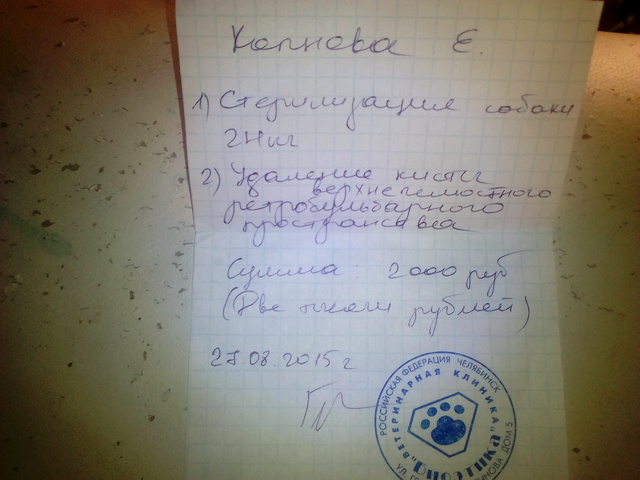 Копнова Е.
1) Стерилизация собаки
24 кг
2) Удаление кисты
верхнечелюстного
ретробульбарного
пространства
Сумма: 2000 руб
(Две тысячи рублей)
27.08.2015 г
РОССИЙСКАЯ ФЕДЕРАЦИЯ ЧЕЛЯБИНСК
ВЕТЕРИНАРНАЯ КЛИНИКА
"Биоэтика"
УЛ. ДОМ 5